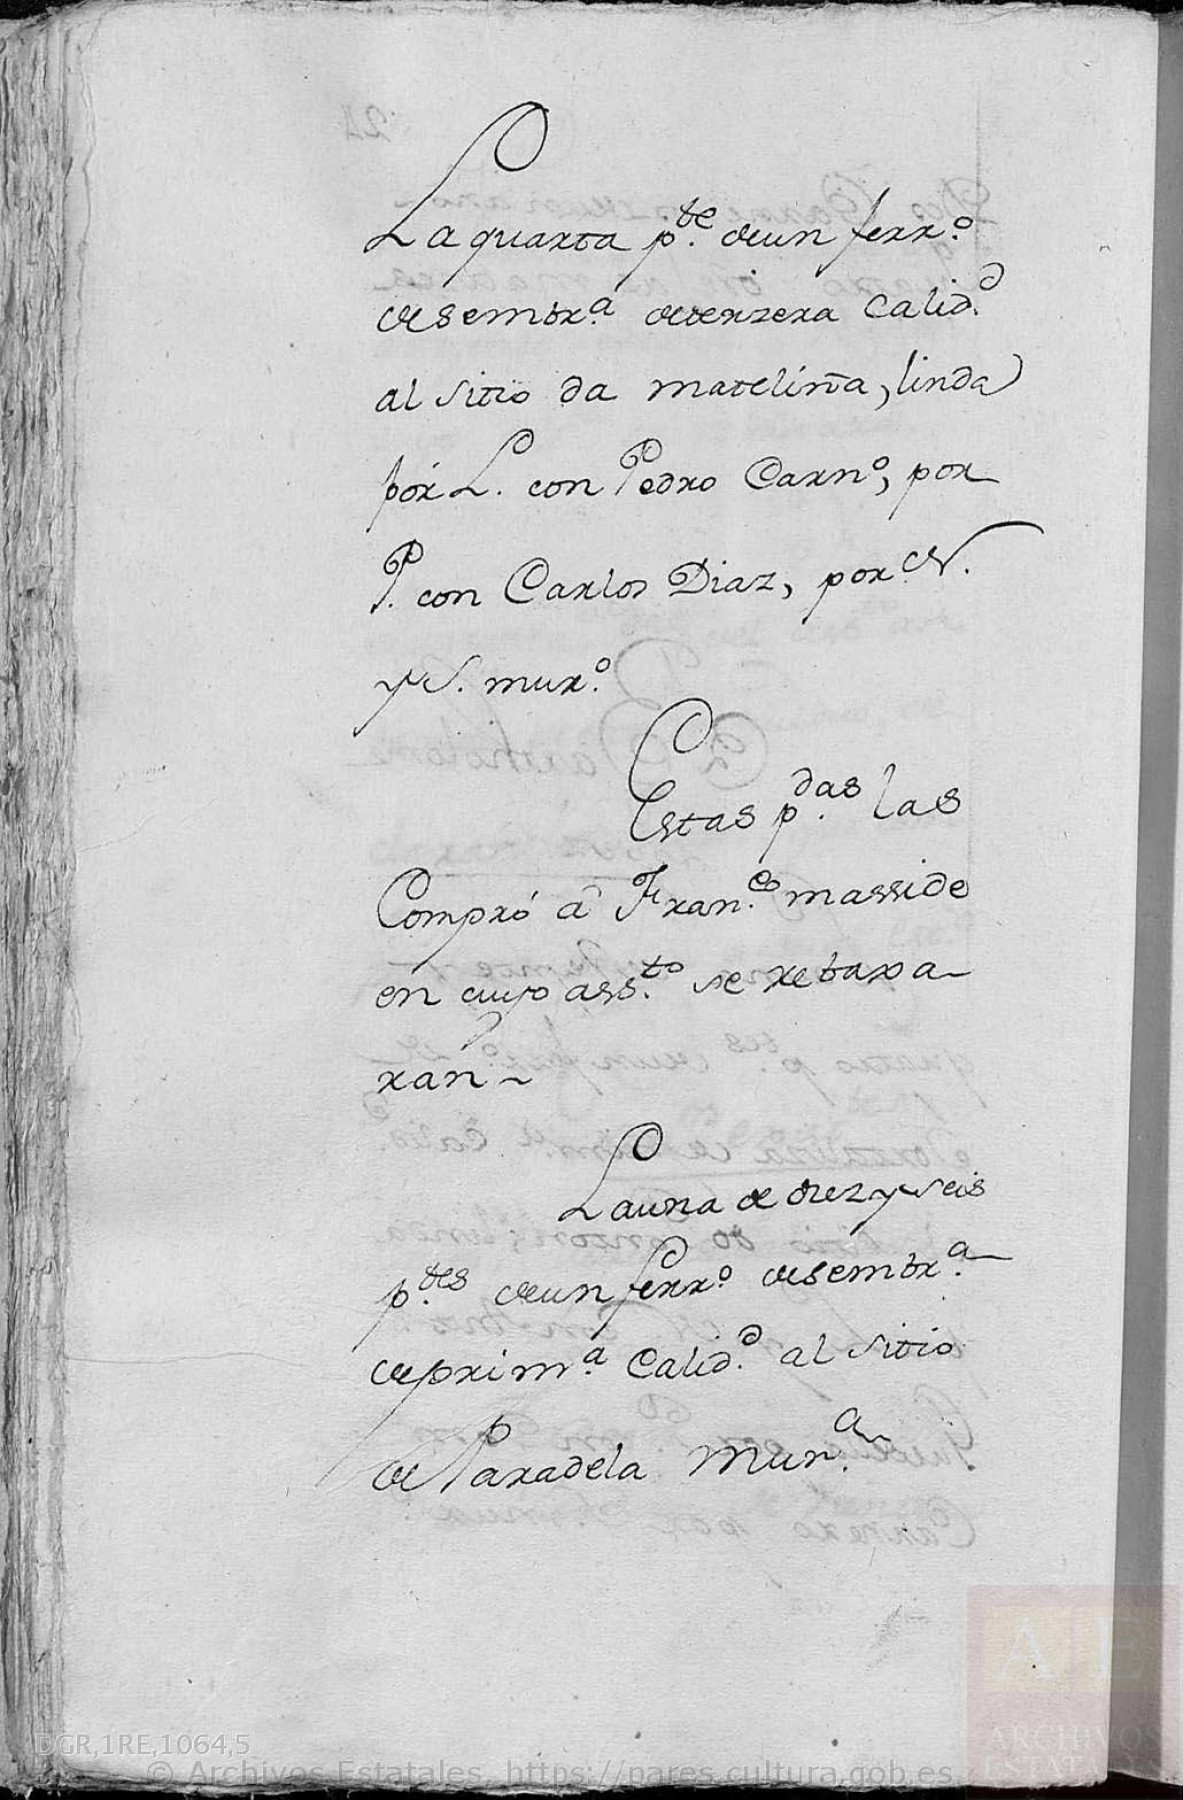 La quarta p.te de un ferr.o
de sembr.a de terzera Calid.d
al sitio da mateliña, linda
pór L. con Pedro Carn.o, por
P. con Carlos Diaz, por N.
y S. mur.o
Estas p.das las
Compró â Fran.co masside
en cuyo ass.to se rebaxa-
ran~
La una de diez y seis
p.tes de un ferr.o de sembr.a
de prim.a Calid.d al sitio
de Paradela Mur.a
DGR,1RE,1064,5
© Archivos Estatales, https://pares.cultura.gob.es
AE
ARCHIVOS
ESTATALES